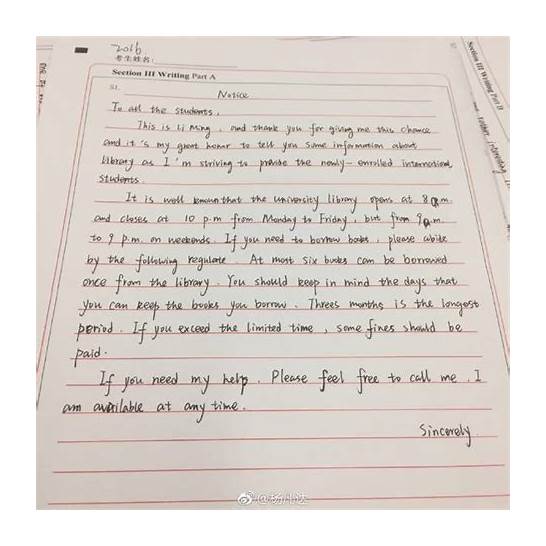 2016
考生姓名:
Section III Writing Part A
51.
Notice
To all the students,
This is Li Ming, and thank you for giving me this chance
and it's my great honor to tell you some information about
library as I'm striving to provide the newly-enrolled international
students.
It is well known that the university library opens at 8 a.m.
and closes at 10 p.m from Monday to Friday, but from 9 a.m.
to 9 p.m. on weekends. If you need to borrow books, please abide
by the following regulate. At most six books can be borrowed
once from the library. You should keep in mind the days that
you can keep the books you borrow. Threes months is the longest
period. If you exceed the limited time, some fines should be
paid.
If you need my help. Please feel free to call me. I
am available at any time.
Sincerely
Section III Writing Part B